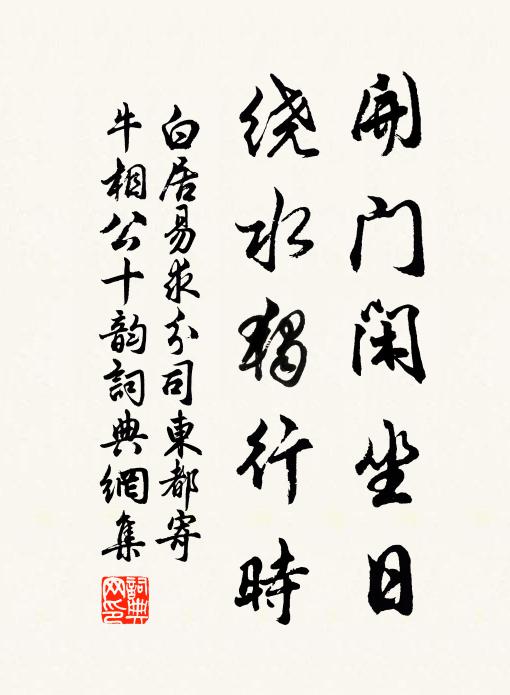 開门闲坐日
绕水獨行時
白居易求分司東都寄
牛相公十韵詞典網集
詞典
网印